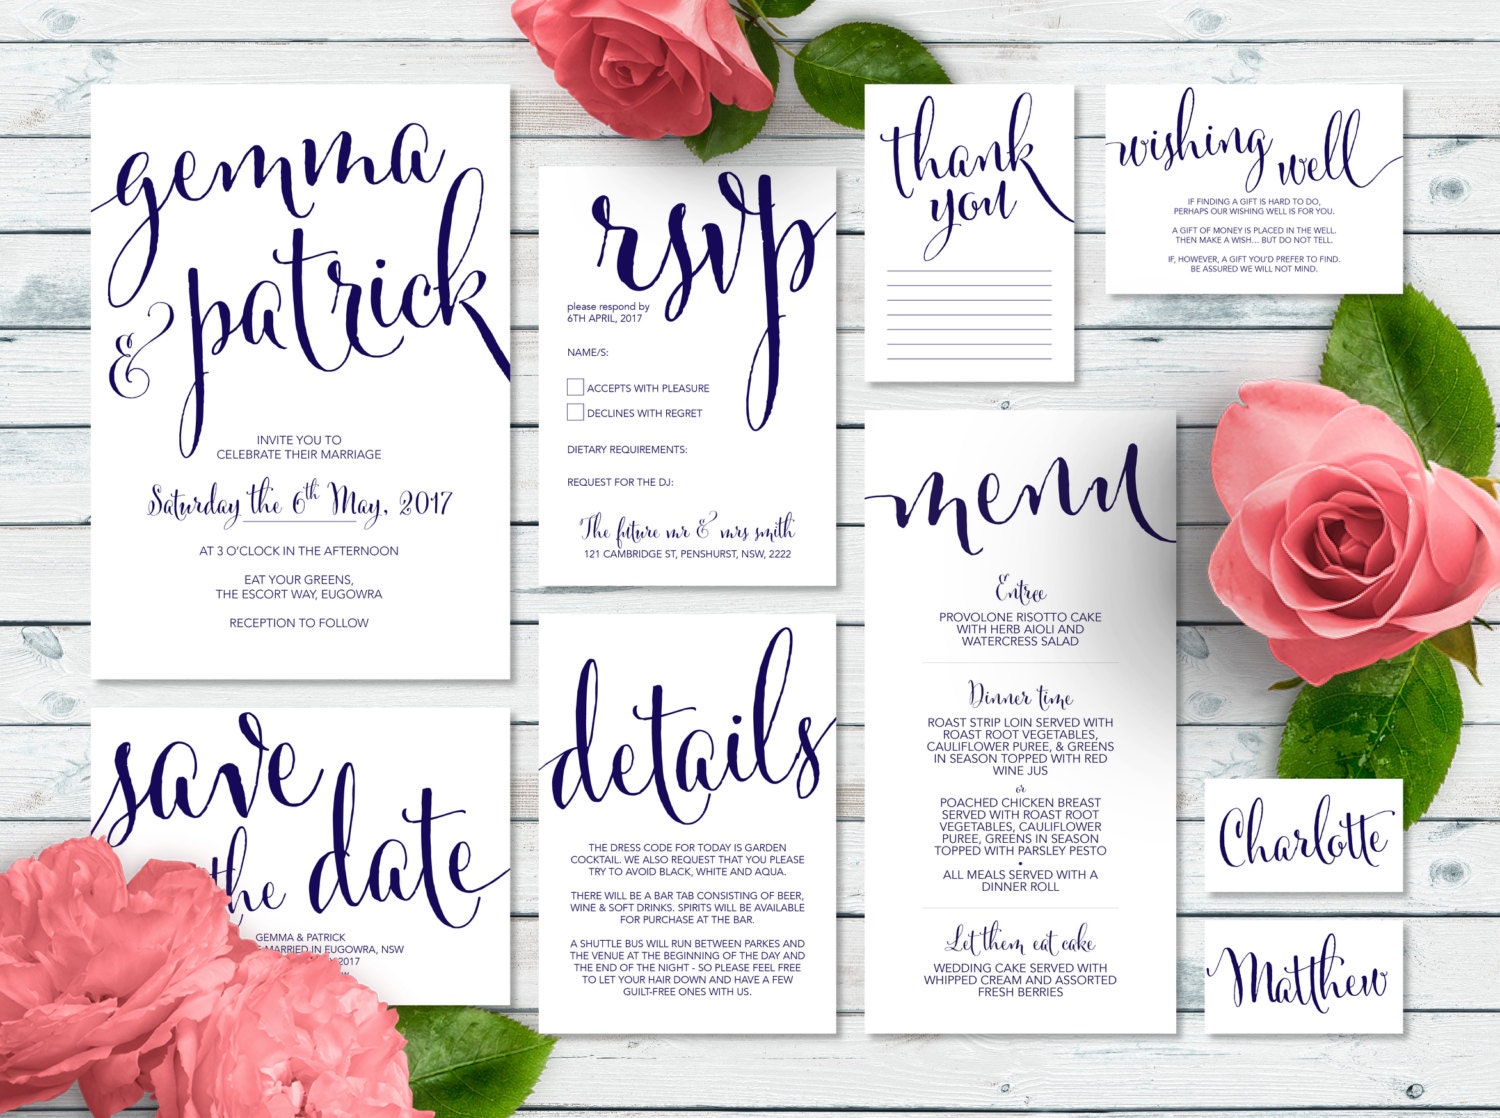 gemma
& patrick
INVITE YOU TO
CELEBRATE THEIR MARRIAGE
Saturday the 6th May, 2017
AT 3 O'CLOCK IN THE AFTERNOON
EAT YOUR GREENS,
THE ESCORT WAY, EUGOWRA
RECEPTION TO FOLLOW
save
the date
GEMMA & PATRICK
MARRIED IN EUGOWRA, NSW
2017
rsvp
please respond by
6TH APRIL, 2017
NAME/S:
ACCEPTS WITH PLEASURE
DECLINES WITH REGRET
DIETARY REQUIREMENTS:
REQUEST FOR THE DJ:
The future mr & mrs smith
121 CAMBRIDGE ST, PENSHURST, NSW, 2222
details
THE DRESS CODE FOR TODAY IS GARDEN
COCKTAIL. WE ALSO REQUEST THAT YOU PLEASE
TRY TO AVOID BLACK, WHITE AND AQUA.
THERE WILL BE A BAR TAB CONSISTING OF BEER,
WINE & SOFT DRINKS. SPIRITS WILL BE AVAILABLE
FOR PURCHASE AT THE BAR.
A SHUTTLE BUS WILL RUN BETWEEN PARKES AND
THE VENUE AT THE BEGINNING OF THE DAY AND
THE END OF THE NIGHT - SO PLEASE FEEL FREE
TO LET YOUR HAIR DOWN AND HAVE A FEW
GUILT-FREE ONES WITH US.
thank
you
wishing well
IF FINDING A GIFT IS HARD TO DO,
PERHAPS OUR WISHING WELL IS FOR YOU.
A GIFT OF MONEY IS PLACED IN THE WELL.
THEN MAKE A WISH... BUT DO NOT TELL.
IF, HOWEVER, A GIFT YOU'D PREFER TO FIND.
BE ASSURED WE WILL NOT MIND.
menu
Entree
PROVOLONE RISOTTO CAKE
WITH HERB AIOLI AND
WATERCRESS SALAD
Dinner time
ROAST STRIP LOIN SERVED WITH
ROAST ROOT VEGETABLES,
CAULIFLOWER PUREE, & GREENS
IN SEASON TOPPED WITH RED
WINE JUS
or
POACHED CHICKEN BREAST
SERVED WITH ROAST ROOT
VEGETABLES, CAULIFLOWER
PUREE, GREENS IN SEASON
TOPPED WITH PARSLEY PESTO
•
ALL MEALS SERVED WITH A
DINNER ROLL
Let them eat cake
WEDDING CAKE SERVED WITH
WHIPPED CREAM AND ASSORTED
FRESH BERRIES
Charlotte
Matthew